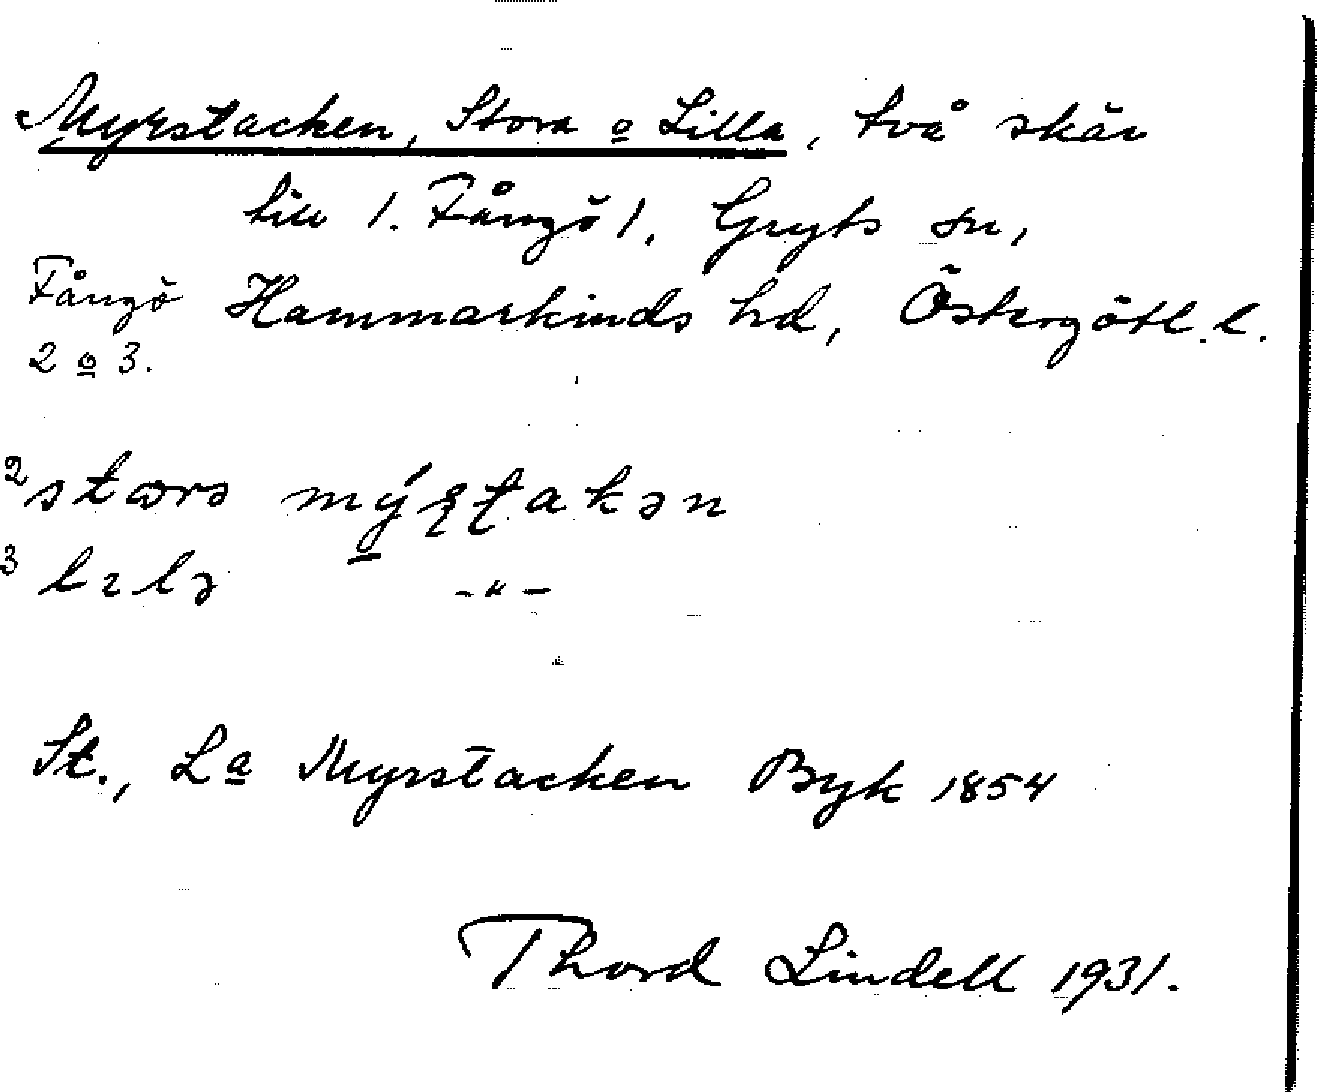 Myrstacken, Stora o Lilla, två skär
till 1. Fångö 1, Gryts sn,
Fångö Hammarkinds hd, Östergötl. l.
2 o 3.
2 stora mýʂʈakən
3 lɩlə -"-
St., La Myrstacken Byk 1854
Thord Lindell 1931.